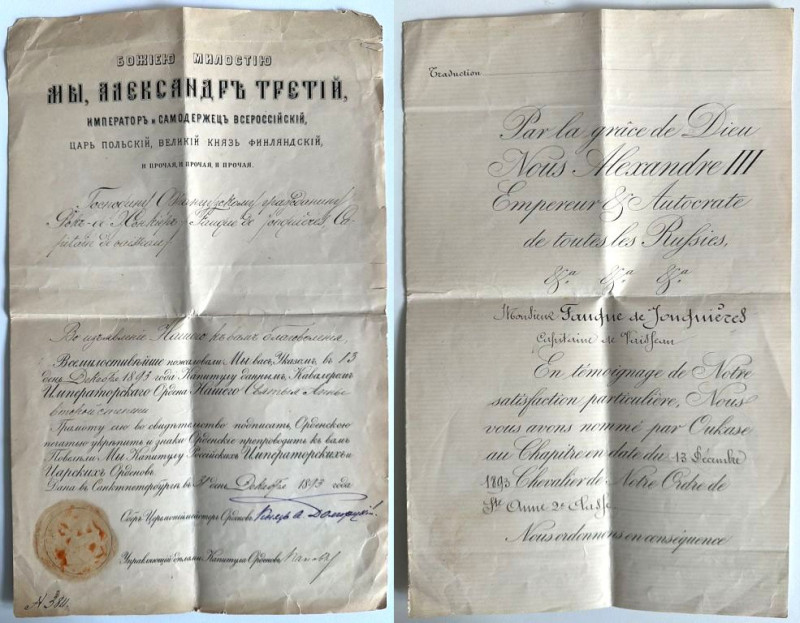 БОЖІЕЮ МИЛОСТІЮ
МЫ, АЛЕКСАНДРЪ ТРЕТІЙ,
ИМПЕРАТОРЪ и САМОДЕРЖЕЦЪ ВСЕРОССІЙСКІЙ,
ЦАРЬ ПОЛЬСКІЙ, ВЕЛИКІЙ КНЯЗЬ ФИНЛЯНДСКІЙ,
И ПРОЧАЯ, И ПРОЧАЯ, И ПРОЧАЯ.
Господину
Fauque de Jonquières Ca-
pitain de vaisseau
Во изъявленіе Нашего къ вамъ благоволенія,
Всемилостивѣйше пожаловали Мы васъ, Указомъ, въ 13
день Декабря 1893 года Капитулу даннымъ, Кавалеромъ
Императорскаго Ордена Нашего Святыя Анны
второй степени
Грамоту сію во свидѣтельство подписать, Орденскою
печатью укрѣпить и знаки Орденскіе препроводить къ вамъ
Повелѣли Мы Капитулу Россійскихъ Императорскихъ и
Царскихъ Орденовъ.
Дана въ Санктпетербургѣ въ день Декабря 1893 года
Оберъ-Церемоніймейстеръ Орденовъ Князь А. Долгорукій
Управляющій дѣлами Капитула Орденовъ
Traduction
Par la grâce de Dieu
Nous Alexandre III
Empereur & Autocrate
de toutes les Russies,
&a &a &a
Monsieur Fauque de Jonquières
Capitaine de Vaisseau
En témoignage de Notre
satisfaction particulière, Nous
vous avons nommé par Oukase
au Chapitre en date du 13 Décembre
1893 Chevalier de Notre Ordre de
Ste Anne 2e Classe
Nous ordonnons en conséquence